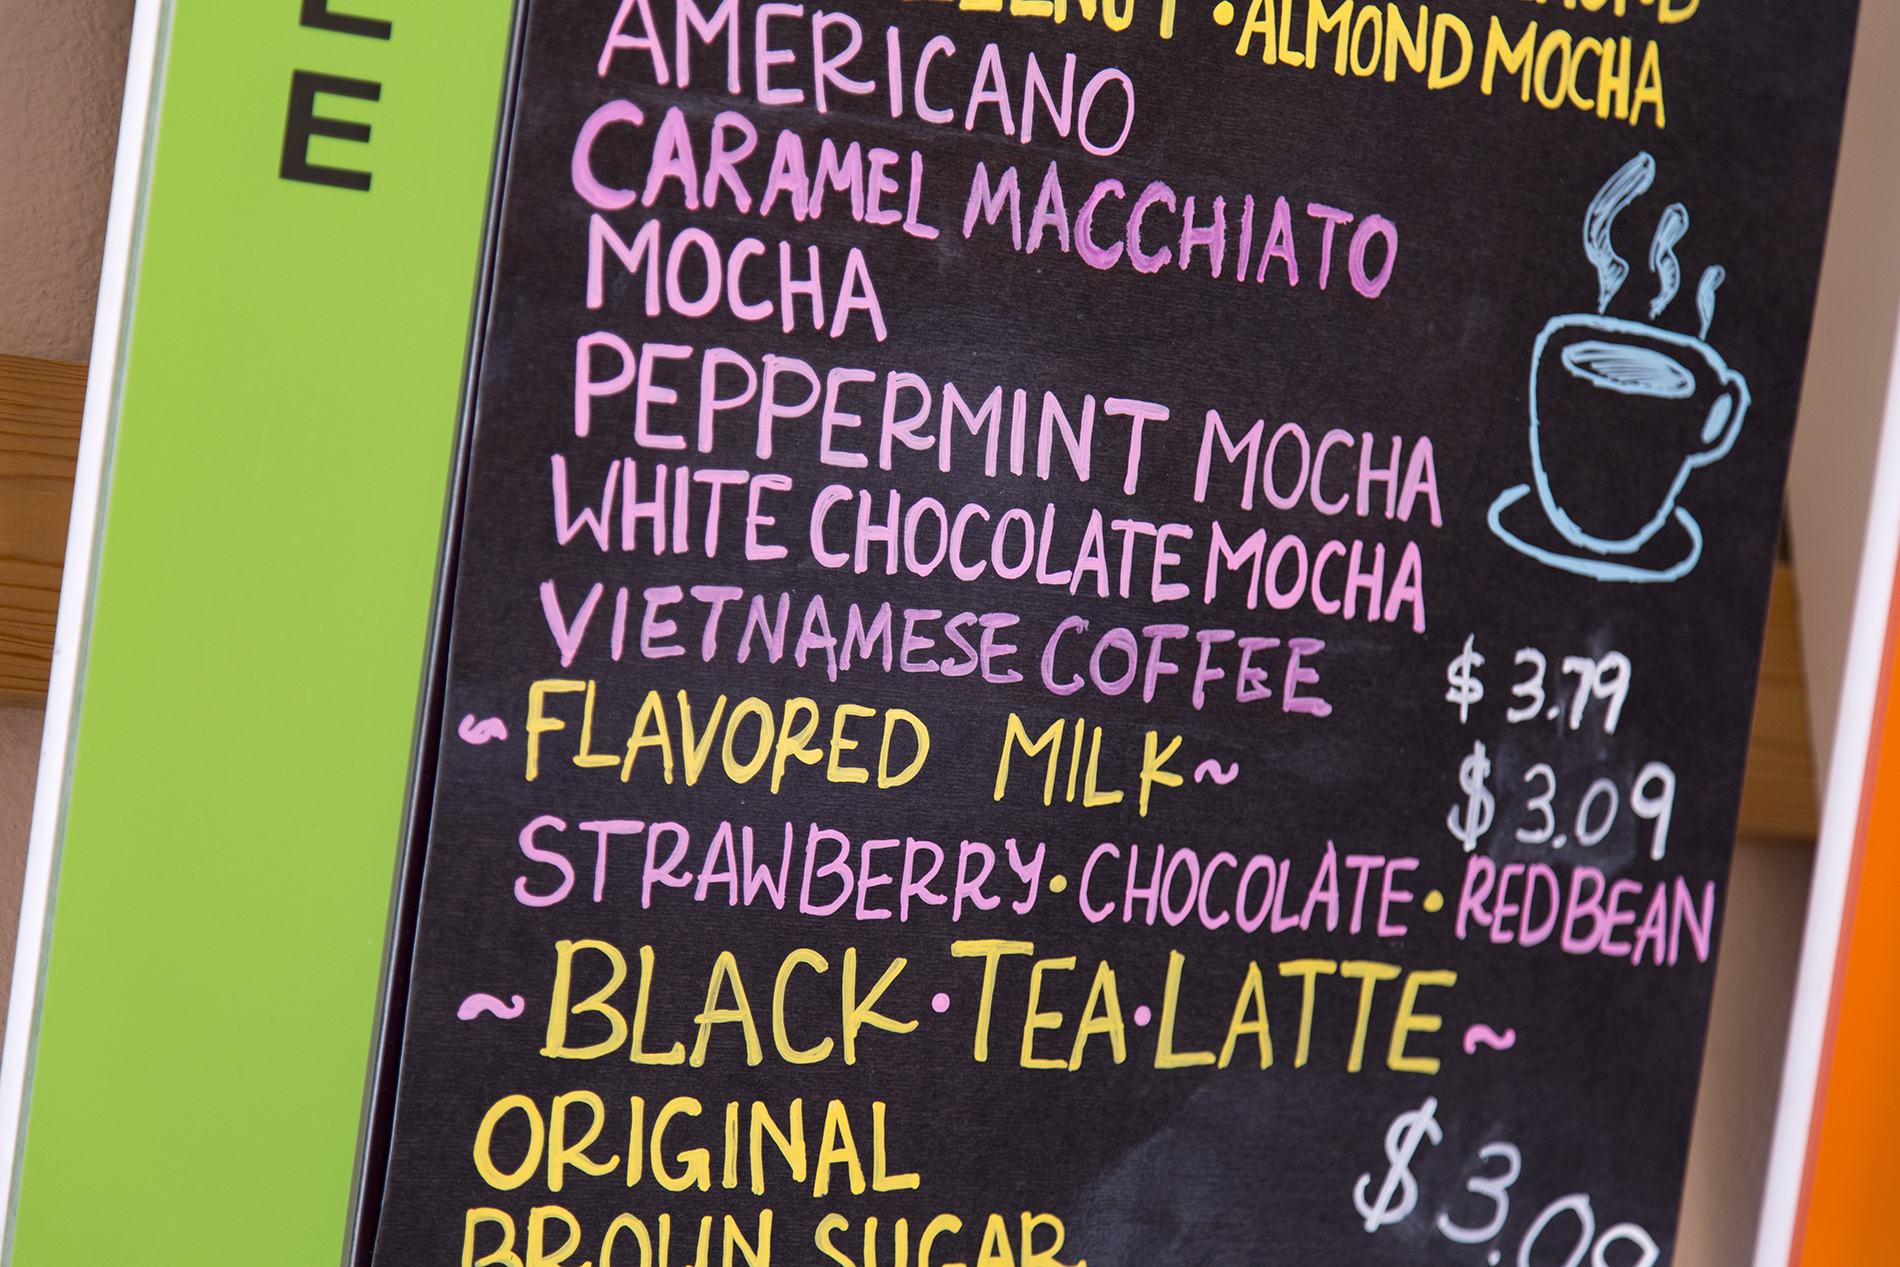 E
ALMOND MOCHA
AMERICANO
CARAMEL MACCHIATO
MOCHA
PEPPERMINT MOCHA
WHITE CHOCOLATE MOCHA
VIETNAMESE COFFEE $3.79
~FLAVORED MILK~ $3.09
STRAWBERRY·CHOCOLATE·REDBEAN
~BLACK·TEA·LATTE~
ORIGINAL $3.09
BROWN SUGAR